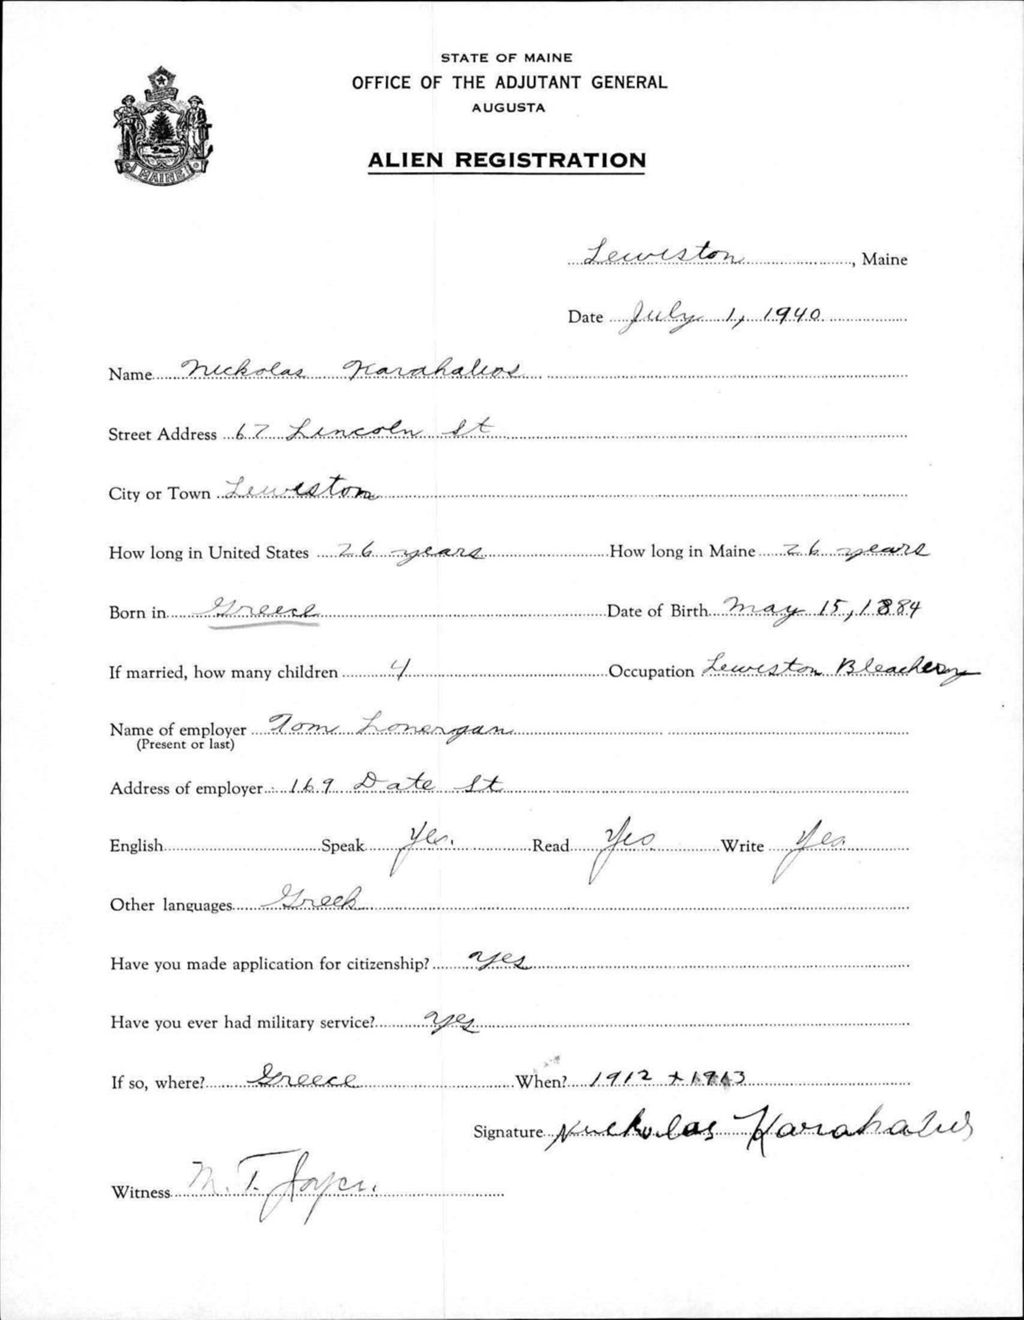 STATE OF MAINE
OFFICE OF THE ADJUTANT GENERAL
AUGUSTA
ALIEN REGISTRATION
MAINE
Lewiston, Maine
Date July 1, 1940
Name Nickolas Karahalios
Street Address 67 Lincoln St
City or Town Lewiston
How long in United States 26 years How long in Maine 26 years
Born in Greece Date of Birth May 15, 1884
If married, how many children 4 Occupation Lewiston Bleachery
Name of employer Tom Lonergan
(Present or last)
Address of employer 169 Date St
English Speak Yes. Read Yes Write Yes
Other languages Greek
Have you made application for citizenship? Yes
Have you ever had military service? Yes
If so, where? Greece When? 1912 + 1913
Signature Nickolas Karahalios
Witness M. T. Joyce.